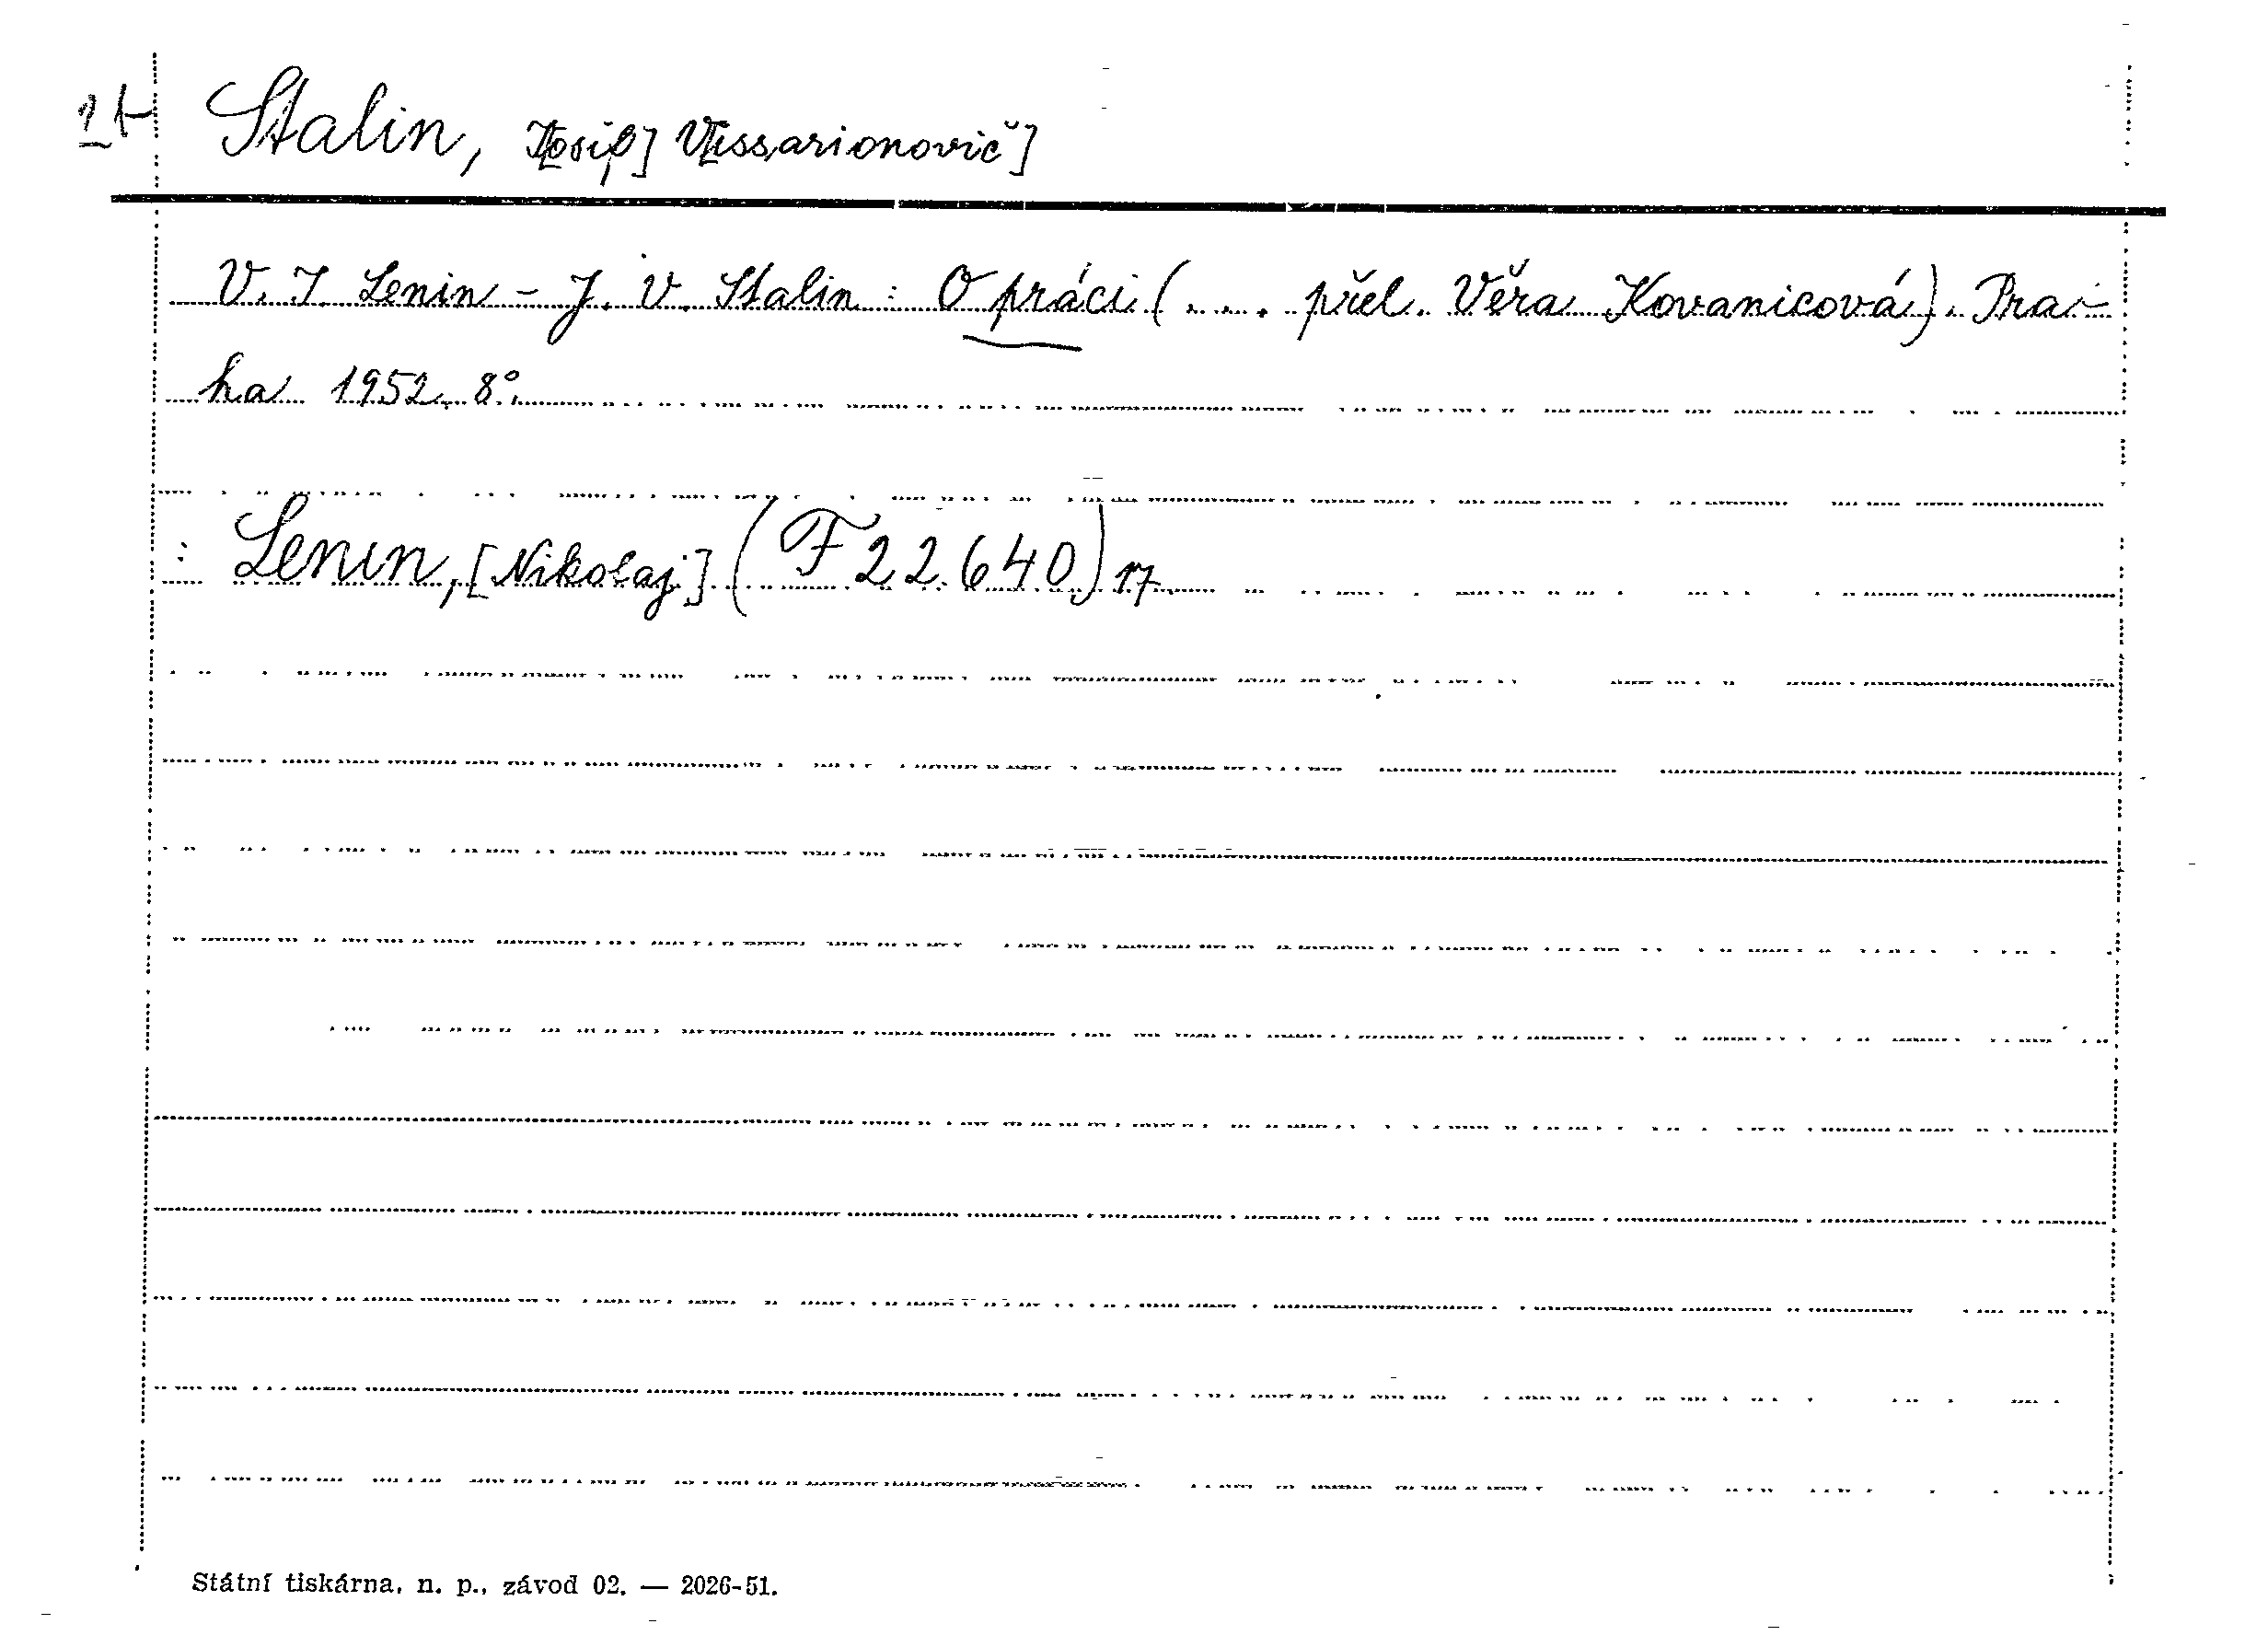 Stalin, J[osip] V[issarionovič]
V. I. Lenin - J. V. Stalin: O práci (.... přel. Věra Kovanicová). Pra-
ha 1952. 8°.
: Lenin, [Nikolaj] (F 22.640) 17.
Státní tiskárna, n. p., závod 02. — 2026-51.